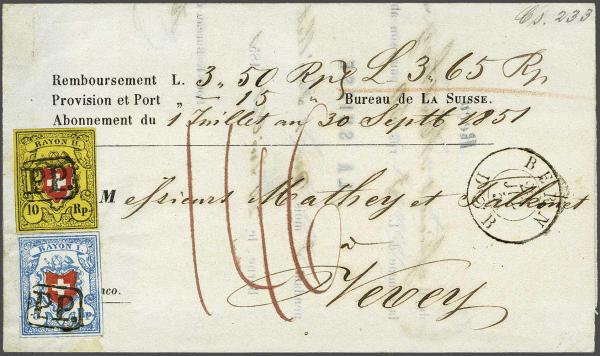 Cs. 233
Remboursement L. 3 „ 50 Rp } L 3 „ 65 Rp
Provision et Port „ – 15 „ Bureau de LA SUISSE.
Abonnement du 1 Juillet au 30 Septb 1851
RAYON II.
P.P.
10 Rp.
Messieurs Mathey et
BERN
à
Vevey
RAYON I.
P.P.
nco.